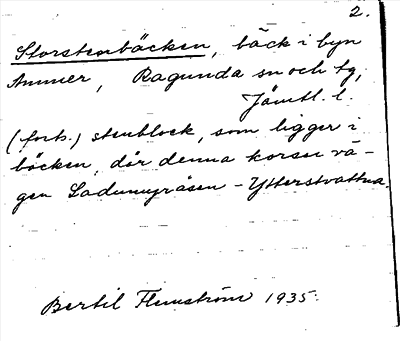 2.
Storstenbäcken, bäck i byn
Ammer, Ragunda sn och tg,
Jämtl. l.
(forts.) stenblock, som ligger i
bäcken, där denna korsar vä-
gen Ladumyråsen - Ytterstvattna.
Bertil Flemström 1935.